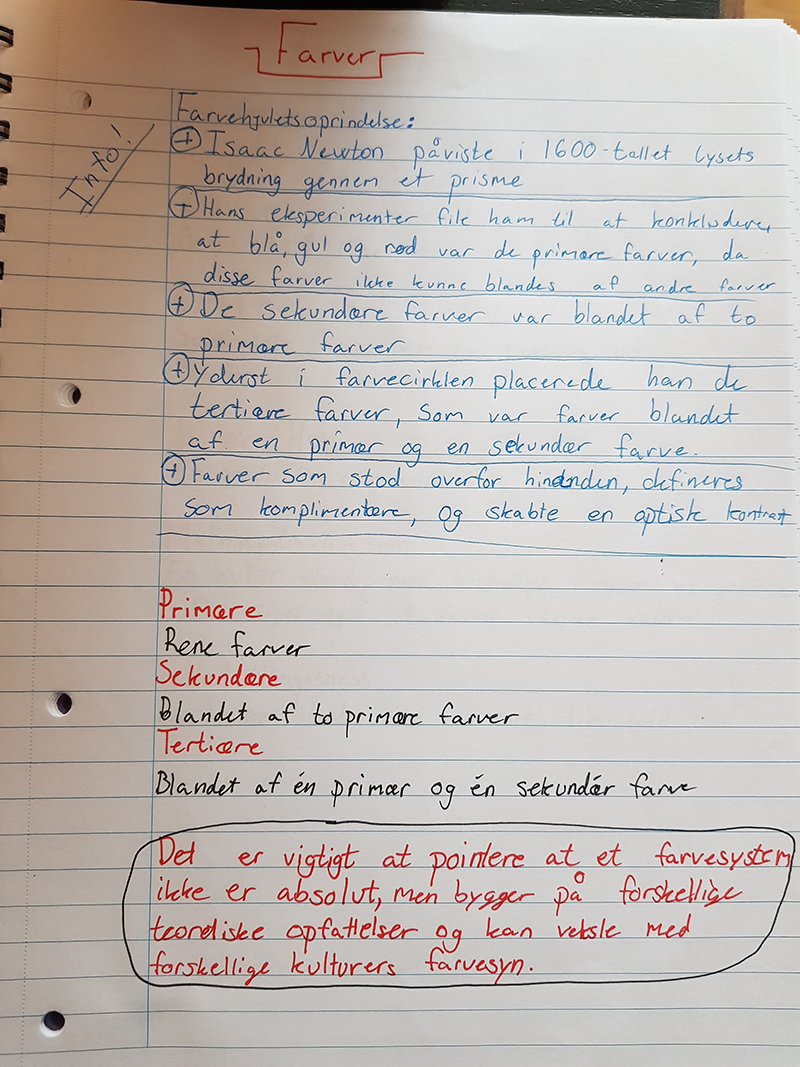 Farver
Info!
Farvehjulets oprindelse:
+ Isaac Newton påviste i 1600-tallet lysets
brydning gennem et prisme
+ Hans eksperimenter fik ham til at konkludere,
at blå, gul og rød var de primære farver, da
disse farver ikke kunne blandes af andre farver
+ De sekundære farver var blandet af to
primære farver
+ Yderst i farvecirklen placerede han de
tertiære farver, som var farver blandet
af en primær og en sekundær farve.
+ Farver som stod overfor hinanden, defineres
som komplimentære, og skabte en optisk kontrast
Primære
Rene farver
Sekundære
Blandet af to primære farver
Tertiære
Blandet af én primær og én sekundær farve
Det er vigtigt at pointere at et farvesystem
ikke er absolut, men bygger på forskellige
teoretiske opfattelser og kan veksle med
forskellige kulturers farvesyn.